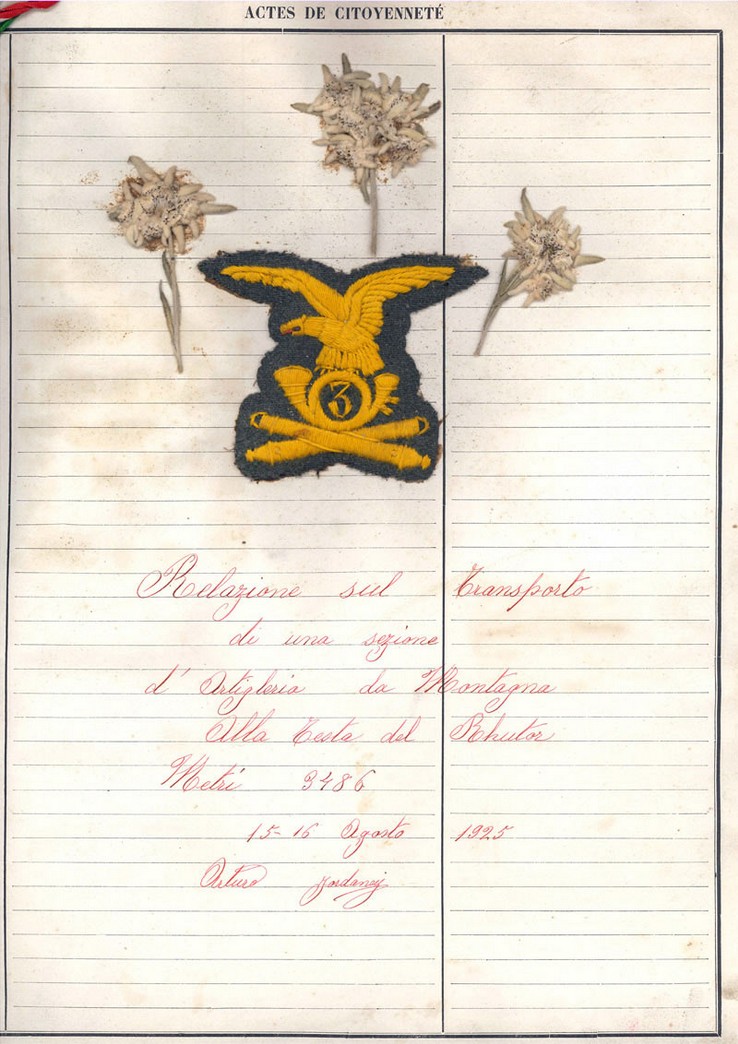 ACTES DE CITOYENNETÉ
3
Relazione sul Transporto
di una sezione
d' Artigleria da Montagna
Alla Testa del Rhutor
Metri 3486
15-16 Agosto 1925
Arturo